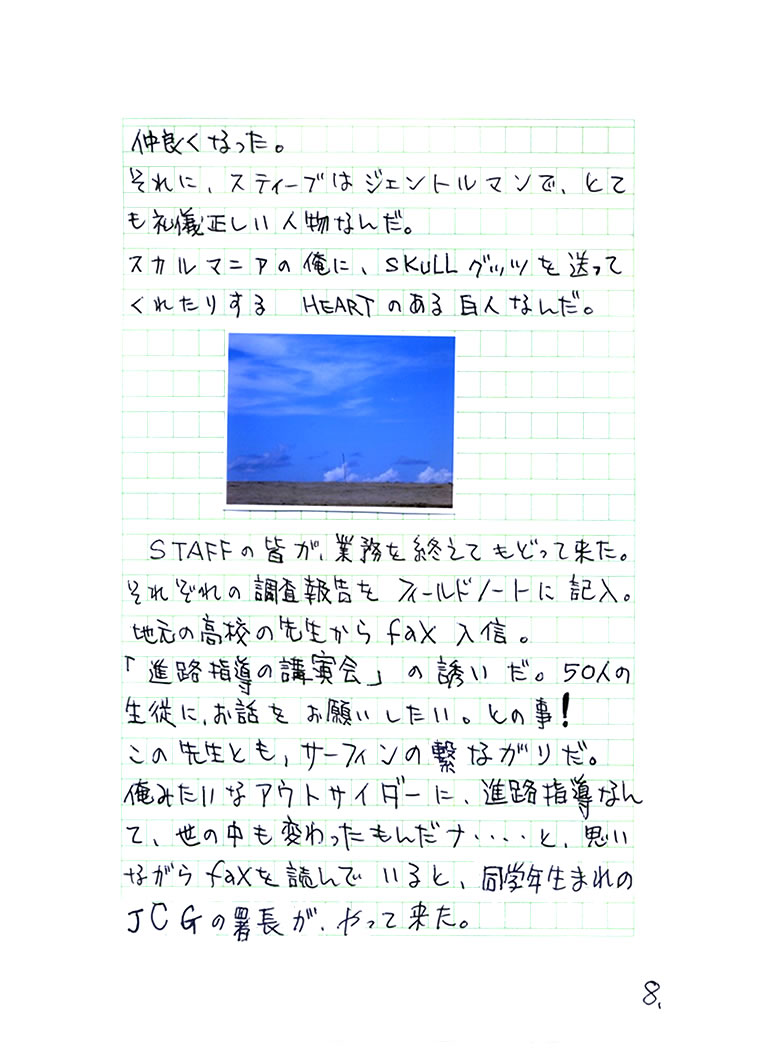 仲良くなった。
それに、スティーブはジェントルマンで、とて
も礼儀正しい人物なんだ。
スカルマニアの俺に、SKULLグッツを送って
くれたりする HEARTのある白人なんだ。
STAFFの皆が、業務を終えてもどって来た。
それぞれの調査報告をフィールドノートに記入。
地元の高校の先生からfax入信。
「進路指導の講演会」の誘いだ。50人の
生徒に、お話をお願いしたい。との事!
この先生とも、サーフィンの繋ながりだ。
俺みたいなアウトサイダーに、進路指導なん
て、世の中も変わったもんだナ・・・・と、思い
ながらfaxを読んでいると、同学年生まれの
JCGの署長が、やって来た。
8.